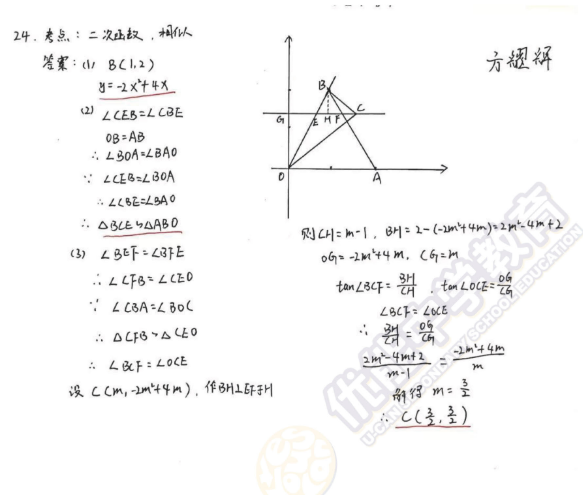 24. 考点：二次函数，相似
答案：(1) B(1,2)
y=-2x²+4x
(2) ∠CEB=∠CBE
OB=AB
∴ ∠BOA=∠BAO
∵ ∠CEB=∠BOA
∴ ∠CBE=∠BAO
∴ △BCE∽△ABO
(3) ∠BEF=∠BFE
∴ ∠CFB=∠CEO
∵ ∠CBA=∠BOC
∴ △CFB∽△CEO
∴ ∠BCF=∠OCE
设 C(m, -2m²+4m)，作BH⊥EF于H
B
G E H F C
O A
则CH=m-1，BH=2-(-2m²+4m)=2m²-4m+2
OG=-2m²+4m，CG=m
tan∠BCF=BH/CH，tan∠OCE=OG/CG
∠BCF=∠OCE
∴ BH/CH=OG/CG
2m²-4m+2/m-1=-2m²+4m/m
解得 m=3/2
∴ C(3/2, 3/2)
优能中学教育
U-CAN SECONDARY SCHOOL EDUCATION